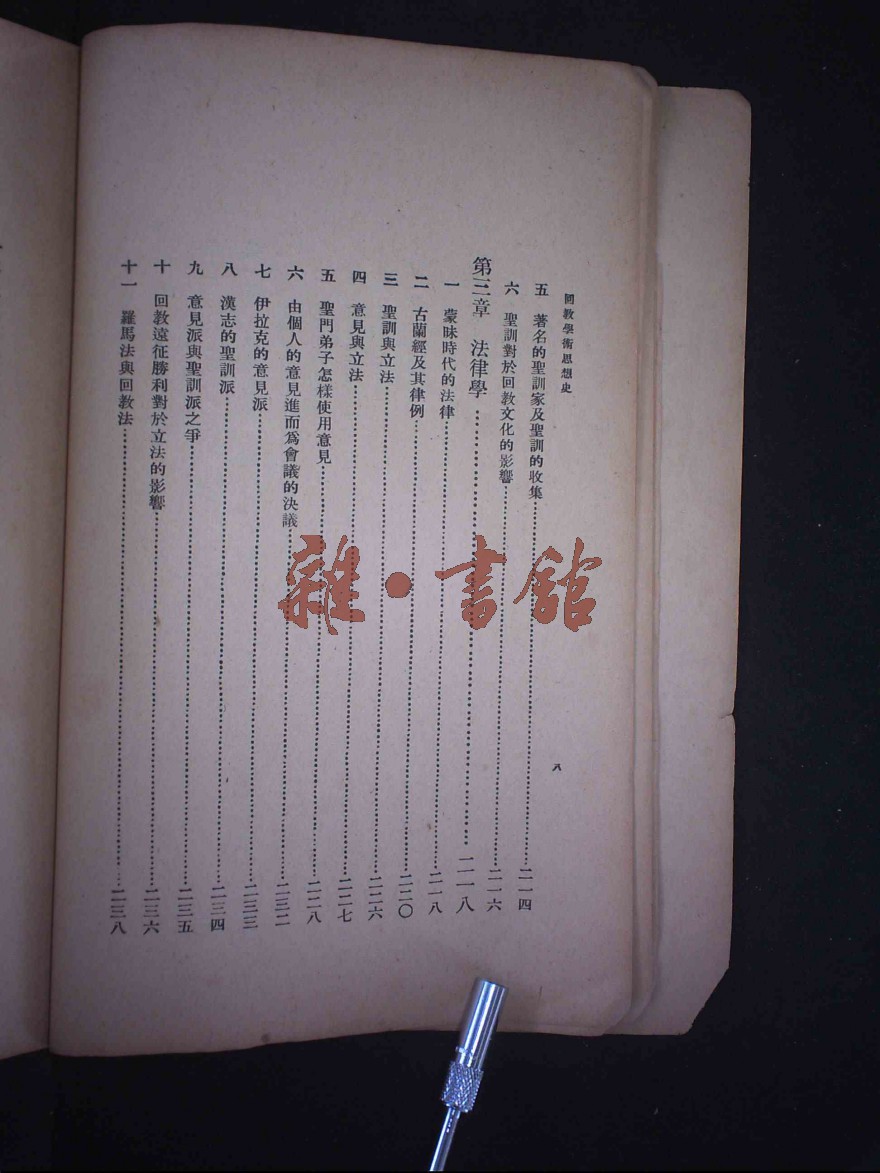 回教學術思想史
五　著名的聖訓家及聖訓的收集……二一四
六　聖訓對於回教文化的影響……二一六
第三章　法律學……二一八
一　蒙昧時代的法律……二一八
二　古蘭經及其律例……二二〇
三　聖訓與立法……二二六
四　意見與立法……二二七
五　聖門弟子怎樣使用意見……二二八
六　由個人的意見進而爲會議的決議……二三二
七　伊拉克的意見派……二三三
八　漢志的聖訓派……二三四
九　意見派與聖訓派之爭……二三五
十　回教遠征勝利對於立法的影響……二三六
十一　羅馬法與回教法……二三八
八
雜·書館